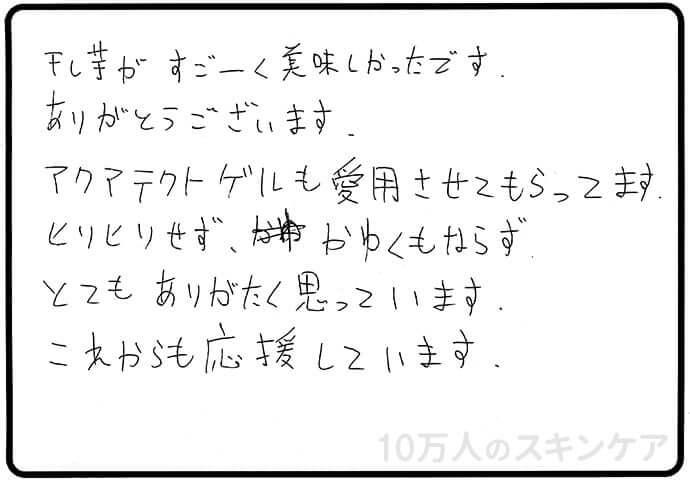 干し芋が すごーく美味しかったです.
ありがとうございます.
アクアテクトゲルも愛用させてもらってます.
ヒリヒリせず、かゆくもならず.
とても ありがたく思っています.
これからも応援しています.
10万人のスキンケア